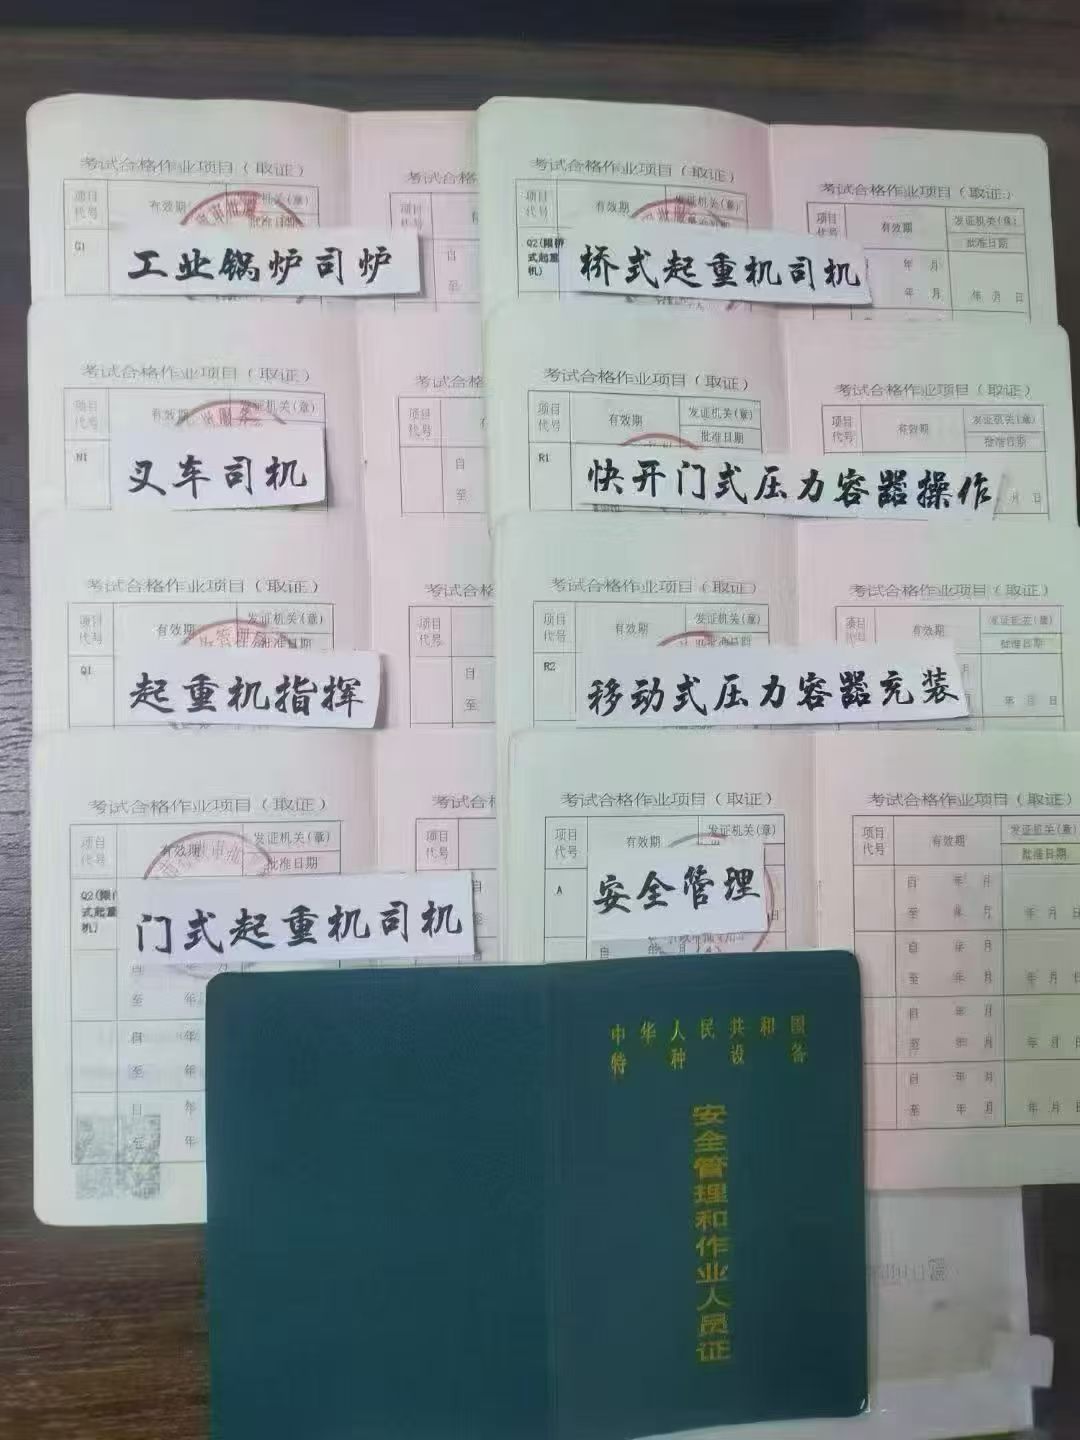 考试合格作业项目（取证）
项目代号
有效期
发证机关(章)
批准日期
G1
工业锅炉司炉
考试合格
项目代号
自
至
考试合格作业项目（取证）
项目代号
有效期
发证机关(章)
Q2(限桥式起重机)
桥式起重机司机
考试合格作业项目（取证）
项目代号
有效期
发证机关(章)
批准日期
年 月
年 月
年 月 日
考试合格作业项目（取证）
项目代号
有效期
发证机关(章)
N1
叉车司机
考试合格
项目代号
自
至
考试合格作业项目（取证）
项目代号
有效期
发证机关(章)
批准日期
R1
快开门式压力容器操作
考试合格作业项目（取证）
项目代号
有效期
发证机关(章)
批准日期
月 日
考试合格作业项目（取证）
项目代号
有效期
发证机关(章)
批准日期
Q1
起重机指挥
考试合格
项目代号
自
至
考试合格作业项目（取证）
项目代号
有效期
发证机关(章)
批准日期
R2
移动式压力容器充装
考试合格作业项目（取证）
项目代号
有效期
发证机关(章)
批准日期
月
年 月 日
考试合格作业项目（取证）
项目代号
有效期
发证机关(章)
批准日期
Q2(限门式起重机)
门式起重机司机
自 年
至 年
自 年
至 年
自 年
至 年
考试合格
项目代号
考试合格作业项目（取证）
项目代号
有效期
发证机关(章)
A
安全管理
自 年 月
考试合格作业项目（取证）
项目代号
有效期
发证机关(章)
批准日期
自 年 月
至 年 月
年 月 日
自 年 月
至 年 月
年 月 日
自 年 月
至 年 月
年 月 日
自 年 月
至 年 月
年 月 日
中华人民共和国
特种设备
安全管理和作业人员证